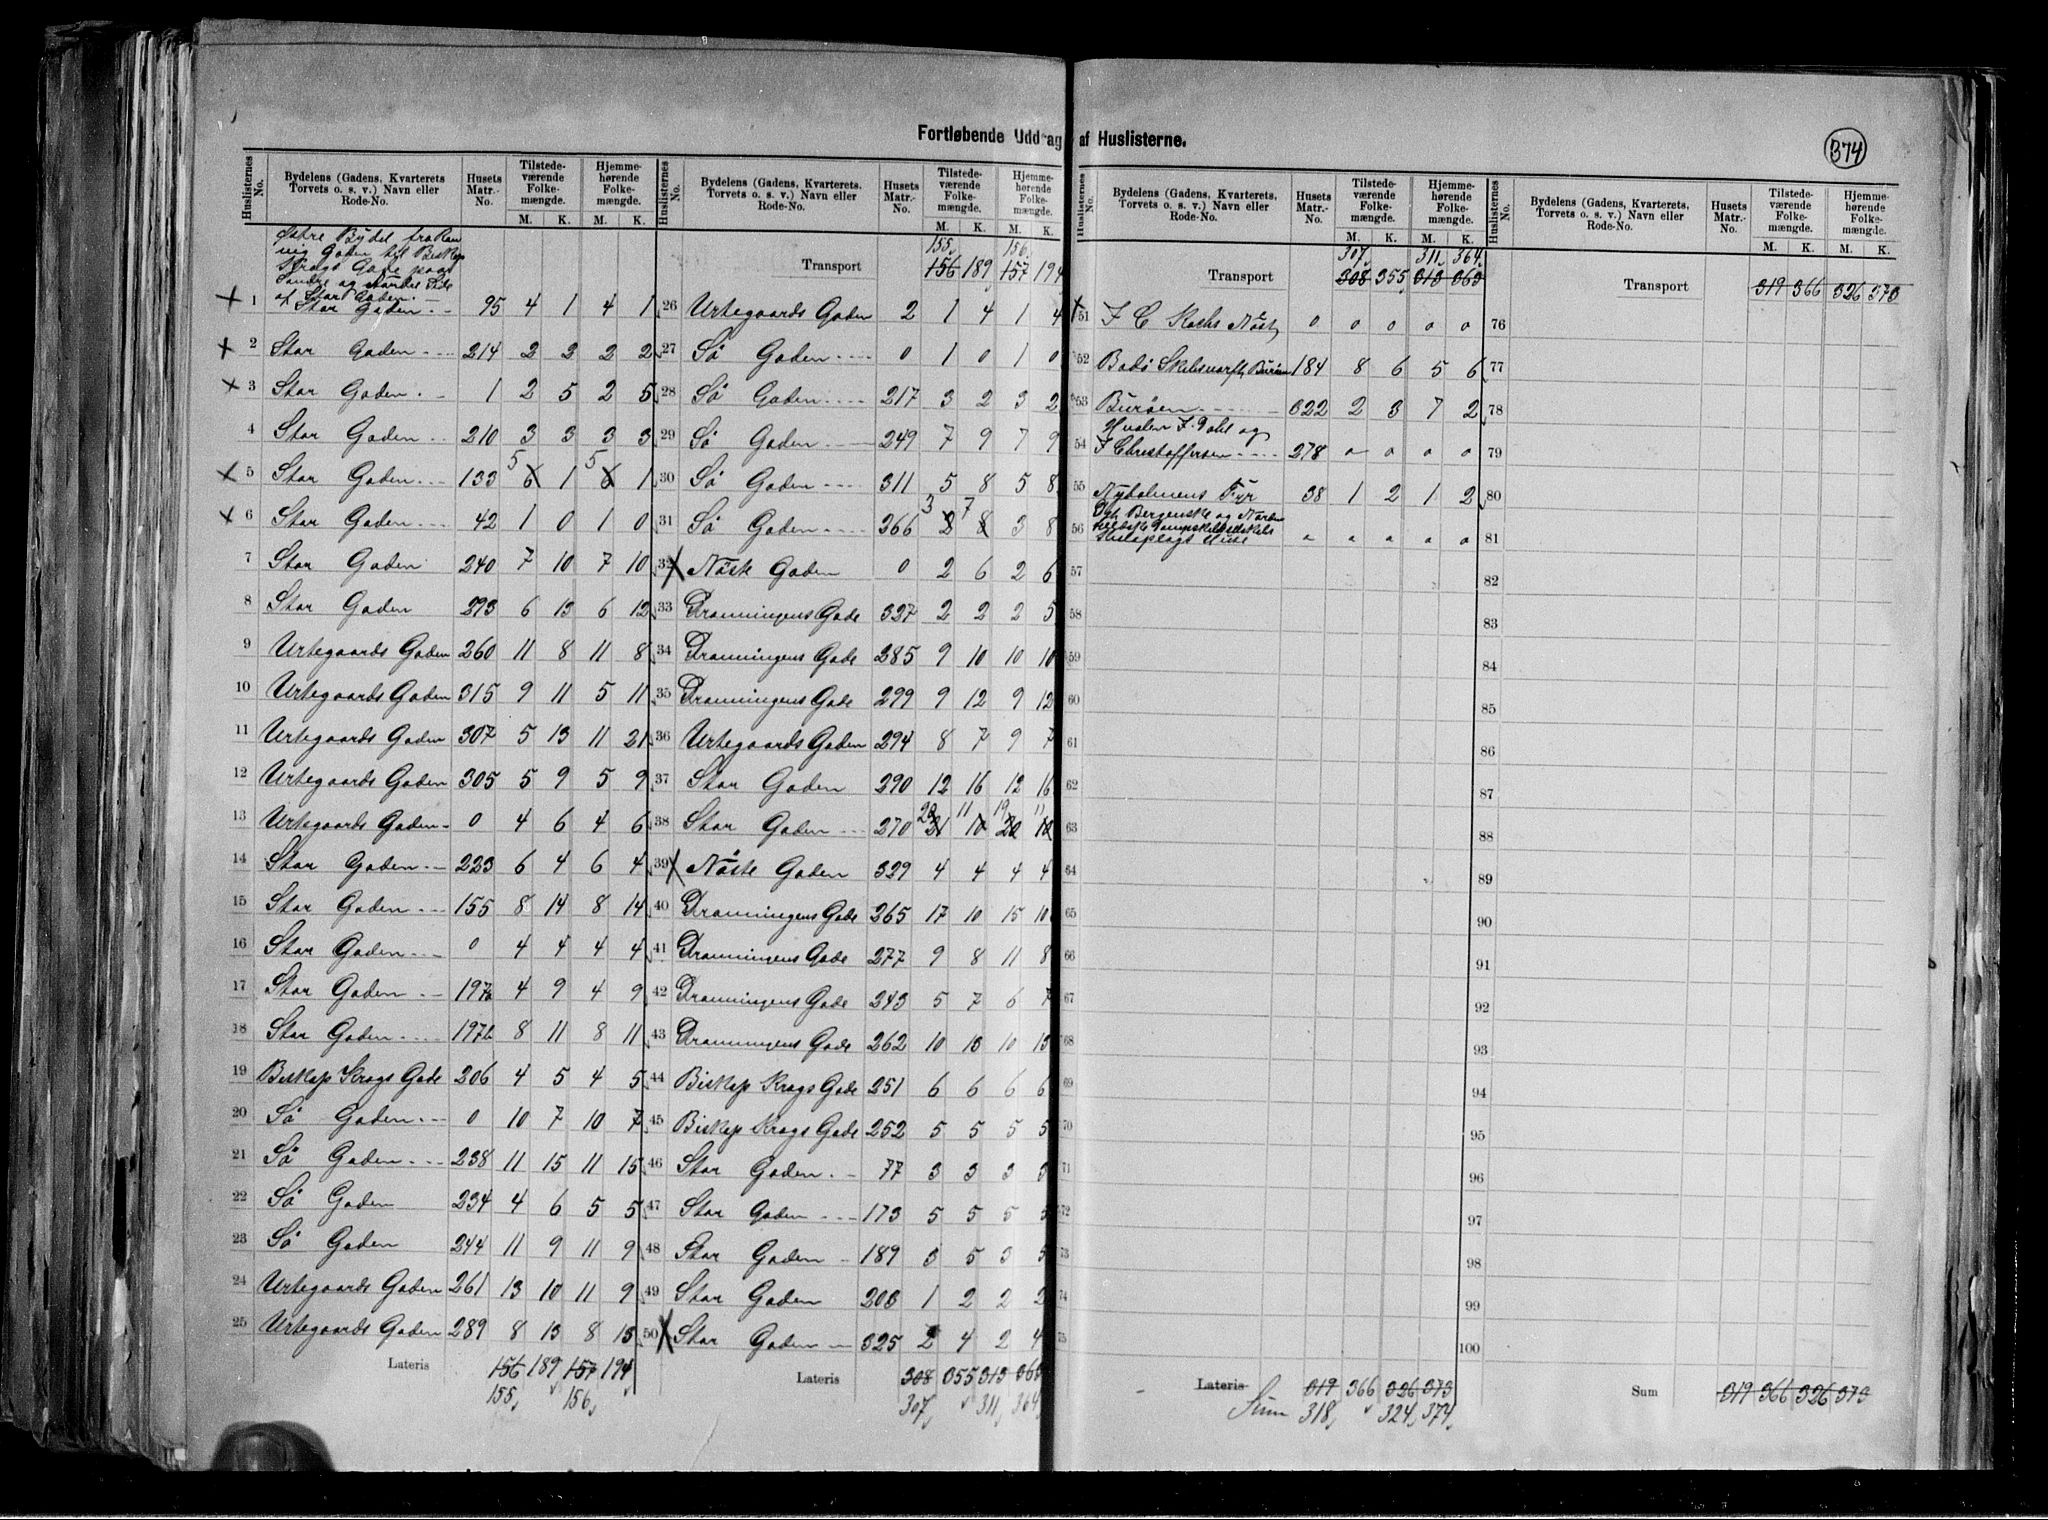 Fortløbende Uddrag af Huslisterne.
374
Huslisternes No. | Bydelens (Gadens, Kvarterets, Torvets o. s. v.) Navn eller Rode-No. | Husets Matr.-No. | Tilstedeværende Folkemængde. M. K. | Hjemmehørende Folkemængde. M. K.
Østre Bydel fra
Gaden til Biskop
Krogs Gade paa
Søndre og Nordre Side
af Stor Gaden.
1 Stor Gaden 95 4 1 4 1
2 Stor Gaden 214 2 3 2 2
3 Stor Gaden 1 2 5 2 5
4 Stor Gaden 210 3 3 3 3
5 Stor Gaden 133 6 5 1 6 5 1
6 Stor Gaden 42 1 0 1 0
7 Stor Gaden 240 7 10 7 10
8 Stor Gaden 293 6 13 6 12
9 Urtegaards Gaden 260 11 8 11 8
10 Urtegaards Gaden 315 9 11 5 11
11 Urtegaards Gaden 307 5 13 11 21
12 Urtegaards Gaden 305 5 9 5 9
13 Urtegaards Gaden 0 4 6 4 6
14 Stor Gaden 223 6 4 6 4
15 Stor Gaden 155 8 14 8 14
16 Stor Gaden 0 4 4 4 4
17 Stor Gaden 197a 4 9 4 9
18 Stor Gaden 197b 8 11 8 11
19 Biskop Krogs Gade 206 4 5 4 5
20 Sö Gaden 0 10 7 10 7
21 Sö Gaden 238 11 15 11 15
22 Sö Gaden 234 4 6 5 5
23 Sö Gaden 244 11 9 11 9
24 Urtegaards Gaden 261 13 10 11 9
25 Urtegaards Gaden 289 8 13 8 13
Lateris 156 189 157 194
155 156
Huslisternes No. | Bydelens (Gadens, Kvarterets, Torvets o. s. v.) Navn eller Rode-No. | Husets Matr.-No. | Tilstedeværende Folkemængde. M. K. | Hjemmehørende Folkemængde. M. K.
155 156
Transport 156 189 157 194
26 Urtegaards Gaden 2 1 4 1 4
27 Sö Gaden 0 1 0 1 0
28 Sö Gaden 217 3 2 3 2
29 Sö Gaden 249 7 9 7 9
30 Sö Gaden 311 5 8 5 8
31 Sö Gaden 266 3 7 8 3 8
32 Nöste Gaden 0 2 6 2 6
33 Dronningens Gade 327 2 2 2 5
34 Dronningens Gade 285 9 10 10 10
35 Dronningens Gade 299 9 12 9 12
36 Urtegaards Gaden 294 8 7 9 7
37 Stor Gaden 290 12 16 12 16
38 Stor Gaden 270 21 20 10 11 20 19 10 11
39 Nöste Gaden 329 4 4 4 4
40 Dronningens Gade 265 17 10 15 10
41 Dronningens Gade 277 9 8 11 8
42 Dronningens Gade 243 5 7 6 7
43 Dronningens Gade 262 10 13 10 13
44 Biskop Krogs Gade 251 6 6 6 6
45 Biskop Krogs Gade 252 5 5 5 5
46 Stor Gaden 77 3 3 3 3
47 Stor Gaden 173 5 5 5 5
48 Stor Gaden 189 3 5 3 5
49 Stor Gaden 203 1 2 2 2
50 Stor Gaden 325 2 4 2 4
Lateris 308 355 313 363
307 311 364
Huslisternes No. | Bydelens (Gadens, Kvarterets, Torvets o. s. v.) Navn eller Rode-No. | Husets Matr.-No. | Tilstedeværende Folkemængde. M. K. | Hjemmehørende Folkemængde. M. K.
307 311 364
Transport 308 355 313 363
51 J C Kochs Nöst 0 0 0 0 0
52 Bodö Skibsværft, Burøen 184 8 6 5 6
53 Burøen 322 2 3 7 2
54 J. Dahl og
J Christoffersen 278 0 0 0 0
55 Nyholmens Fyr 38 1 2 1 2
56 Det Bergenske og Norden
fjeldske Dampskibsselskabs
Huse 0 0 0 0 0
57
58
59
60
61
62
63
64
65
66
67
68
69
70
71
72
73
74
75
Lateris 319 366 326 373
Sum 318 324 374
Huslisternes No. | Bydelens (Gadens, Kvarterets, Torvets o. s. v.) Navn eller Rode-No. | Husets Matr.-No. | Tilstedeværende Folkemængde. M. K. | Hjemmehørende Folkemængde. M. K.
Transport 319 366 326 373
76
77
78
79
80
81
82
83
84
85
86
87
88
89
90
91
92
93
94
95
96
97
98
99
100
Sum 319 366 326 373